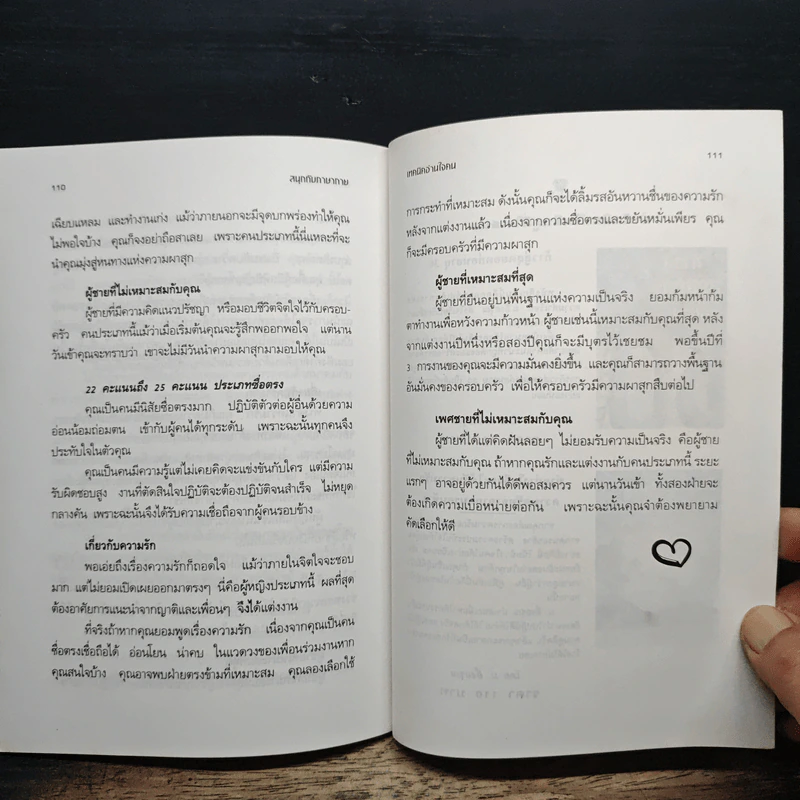 110
สนุกกับภาษากาย
เฉียบแหลม และทำงานเก่ง แม้ว่าภายนอกจะมีจุดบกพร่องทำให้คุณ
ไม่พอใจบ้าง คุณก็จงอย่าถือสาเลย เพราะคนประเภทนี้นี่แหละที่จะ
นำคุณมุ่งสู่หนทางแห่งความผาสุก
ผู้ชายที่ไม่เหมาะสมกับคุณ
ผู้ชายที่มีความคิดแนวปรัชญา หรือมอบชีวิตจิตใจไว้กับครอบ-
ครัว คนประเภทนี้แม้ว่าเมื่อเริ่มต้นคุณจะรู้สึกพออกพอใจ แต่นาน
วันเข้าคุณจะทราบว่า เขาจะไม่มีวันนำความสุขมามอบให้คุณ
22 คะแนนถึง 25 คะแนน ประเภทซื่อตรง
คุณเป็นคนมีนิสัยซื่อตรงมาก ปฏิบัติตัวต่อผู้อื่นด้วยความ
อ่อนน้อมถ่อมตน เข้ากับผู้คนได้ทุกระดับ เพราะฉะนั้นทุกคนจึง
ประทับใจในตัวคุณ
คุณเป็นคนมีความรู้แต่ไม่เคยคิดจะแข่งขันกับใคร แต่มีความ
รับผิดชอบสูง งานที่ตัดสินใจปฏิบัติจะต้องปฏิบัติจนสำเร็จ ไม่หยุด
กลางคัน เพราะฉะนั้นจึงได้รับความเชื่อถือจากผู้คนรอบข้าง
เกี่ยวกับความรัก
พอเอ่ยถึงเรื่องความรักก็ถอดใจ แม้ว่าภายในจิตใจจะชอบ
มาก แต่ไม่ยอมเปิดเผยออกมาตรงๆ นี่คือผู้หญิงประเภทนี้ ผลที่สุด
ต้องอาศัยการแนะนำจากญาติและเพื่อนๆ จึงได้แต่งงาน
ที่จริงถ้าหากคุณยอมพูดเรื่องความรัก เนื่องจากคุณเป็นคน
ซื่อตรงเชื่อถือได้ อ่อนโยน น่าคบ ในแวดวงของเพื่อนร่วมงานหาก
คุณสนใจบ้าง คุณอาจพบฝ่ายตรงข้ามที่เหมาะสม คุณลองเลือกใช้
เทคนิคอ่านใจคน
111
การกระทำที่เหมาะสม ดังนั้นคุณก็จะได้ลิ้มรสอันหวานชื่นของความรัก
หลังจากแต่งงานแล้ว เนื่องจากความซื่อตรงและขยันหมั่นเพียร คุณ
ก็จะมีครอบครัวที่มีความผาสุก
ผู้ชายที่เหมาะสมที่สุด
ผู้ชายที่ยืนอยู่บนพื้นฐานแห่งความเป็นจริง ยอมก้มหน้าก้ม
ตาทำงานเพื่อหวังความก้าวหน้า ผู้ชายเช่นนี้เหมาะสมกับคุณที่สุด หลัง
จากแต่งงานปีหนึ่งหรือสองปีคุณก็จะมีบุตรไว้เชยชม พอขึ้นปีที่
3 การงานของคุณจะมีความมั่นคงยิ่งขึ้น และคุณก็สามารถวางพื้นฐาน
อันมั่นคงของครอบครัว เพื่อให้ครอบครัวมีความผาสุกสืบต่อไป
เพศชายที่ไม่เหมาะสมกับคุณ
ผู้ชายที่ได้แต่คิดฝันลอยๆ ไม่ยอมรับความเป็นจริง คือผู้ชาย
ที่ไม่เหมาะสมกับคุณ ถ้าหากคุณรักและแต่งงานกับคนประเภทนี้ ระยะ
แรกๆ อาจอยู่ด้วยกันได้ดีพอสมควร แต่นานวันเข้า ทั้งสองฝ่ายจะ
ต้องเกิดความเบื่อหน่ายต่อกัน เพราะฉะนั้นคุณจำต้องพยายาม
คัดเลือกให้ดี